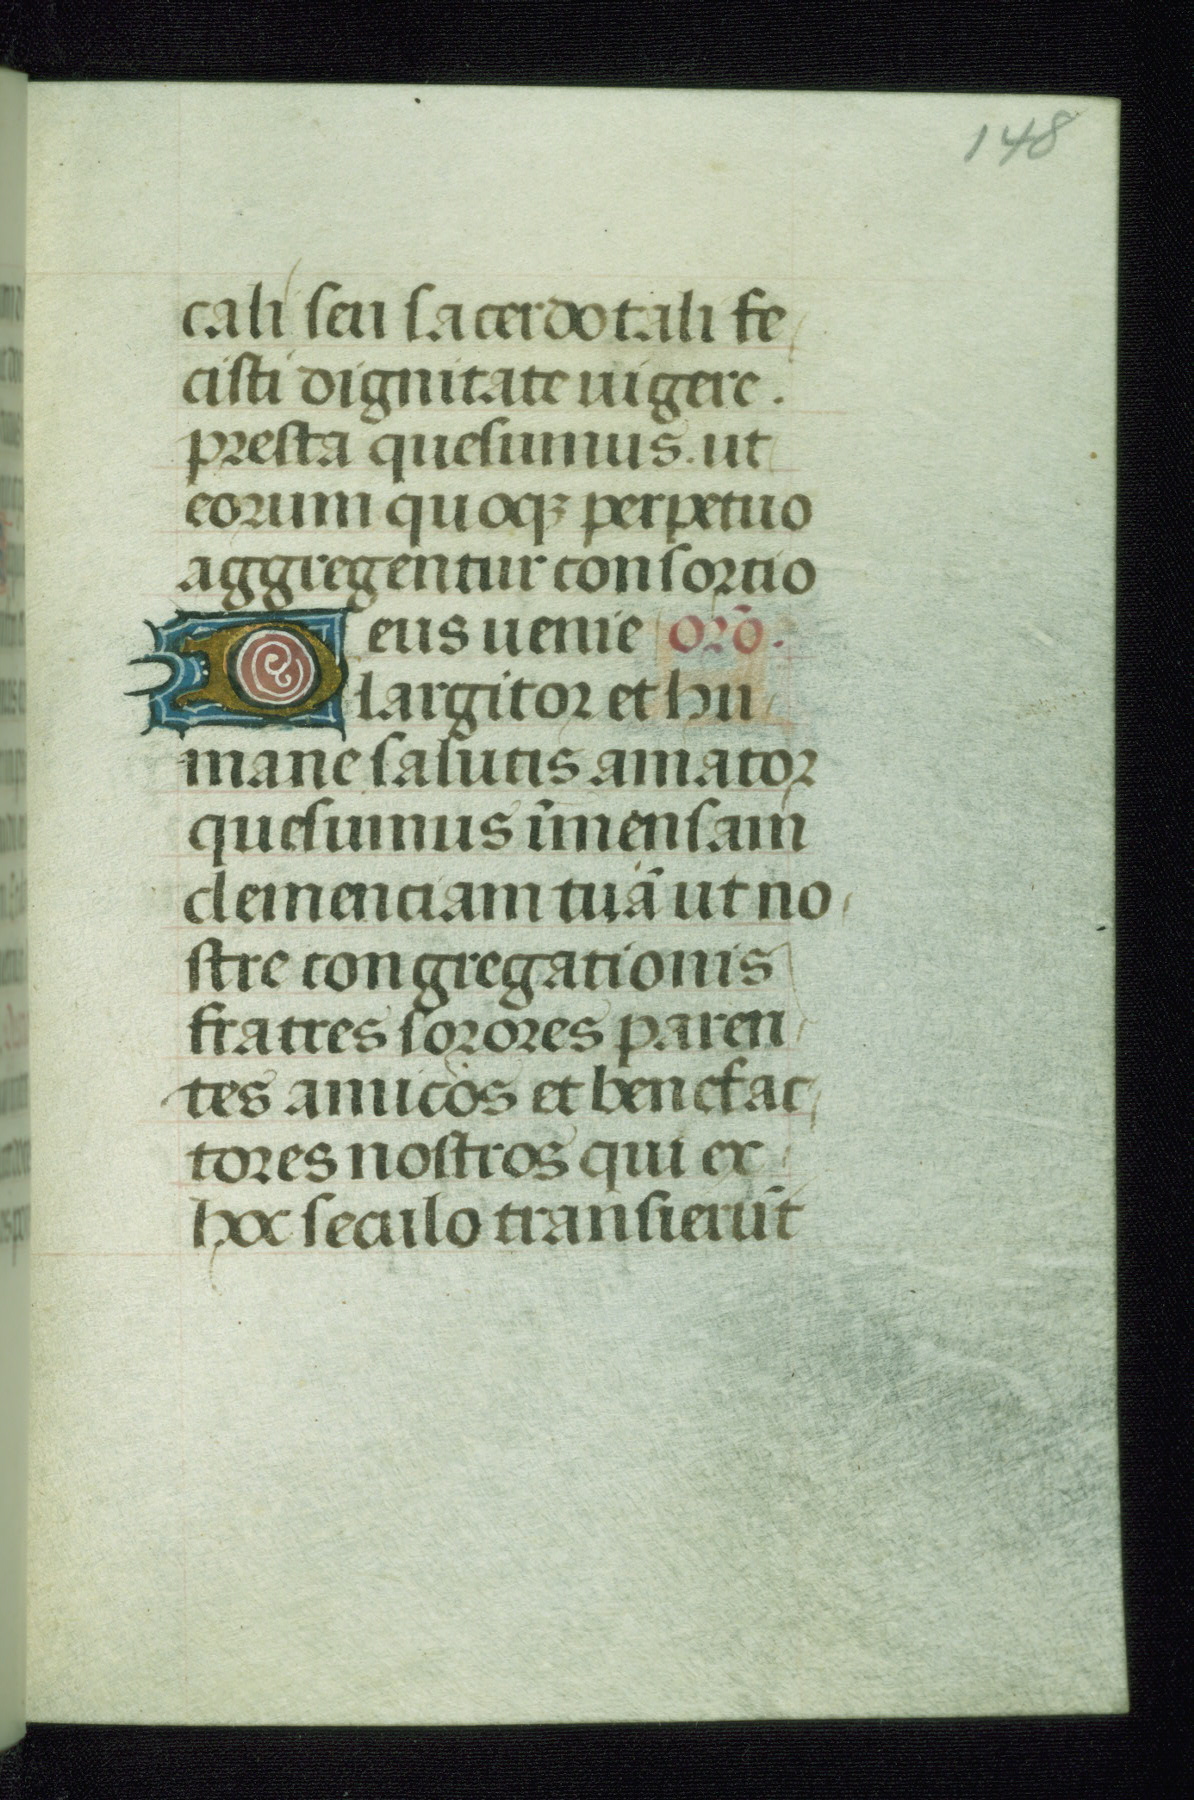 148
cali seu sacerdotali fe
cisti dignitate uigere.
presta quesumus. ut
eorum quoqꝫ perpetuo
aggregentur consortio
Deus uenie orō.
largitor et hu
mane salutis amator
quesumus īmensam
clemenciam tuā ut no
stre congregationis
fratres sorores paren
tes amicos et benefac
tores nostros qui ex
hoc seculo transierūt